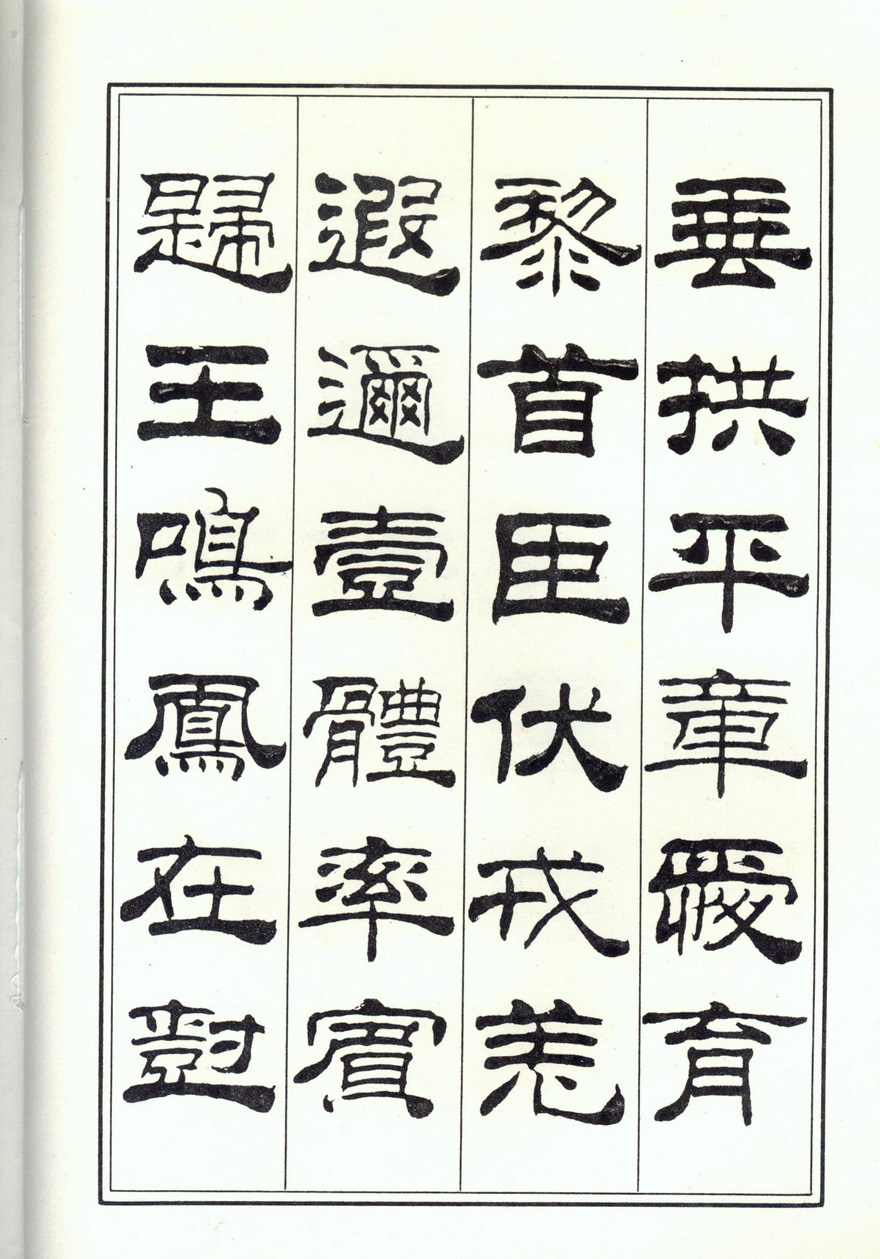 垂拱平章愛育
黎首臣伏戎羌
遐邇壹體率賓
歸王鳴鳳在尌